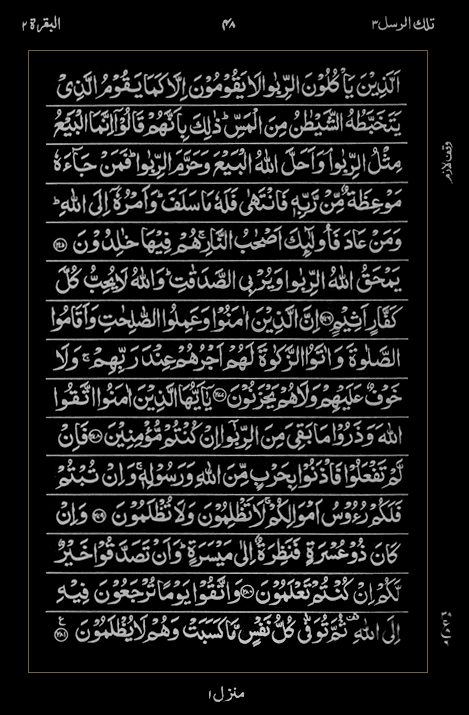 تلك الرسل ٣ ٤٨ البقرة ٢
اَلَّذِیْنَ یَاْكُلُوْنَ الرِّبٰوا لَا یَقُوْمُوْنَ اِلَّا كَمَا یَقُوْمُ الَّذِیْ
یَتَخَبَّطُهُ الشَّیْطٰنُ مِنَ الْمَسِّ ؕ ذٰلِكَ بِاَنَّهُمْ قَالُوْۤا اِنَّمَا الْبَیْعُ
مِثْلُ الرِّبٰوا ۘ وَ اَحَلَّ اللّٰهُ الْبَیْعَ وَ حَرَّمَ الرِّبٰوا ؕ فَمَنْ جَآءَهٗ
وقف لازم
مَوْعِظَةٌ مِّنْ رَّبِّهٖ فَانْتَهٰی فَلَهٗ مَا سَلَفَ ؕ وَ اَمْرُهٗۤ اِلَی اللّٰهِ ؕ
وَ مَنْ عَادَ فَاُولٰٓىِٕكَ اَصْحٰبُ النَّارِ ۚ هُمْ فِیْهَا خٰلِدُوْنَ ﴿۲۷۵﴾
یَمْحَقُ اللّٰهُ الرِّبٰوا وَ یُرْبِی الصَّدَقٰتِ ؕ وَ اللّٰهُ لَا یُحِبُّ كُلَّ
كَفَّارٍ اَثِیْمٍ ﴿۲۷۶﴾ اِنَّ الَّذِیْنَ اٰمَنُوْا وَ عَمِلُوا الصّٰلِحٰتِ وَ اَقَامُوا
الصَّلٰوةَ وَ اٰتَوُا الزَّكٰوةَ لَهُمْ اَجْرُهُمْ عِنْدَ رَبِّهِمْ ۚ وَ لَا
خَوْفٌ عَلَیْهِمْ وَ لَا هُمْ یَحْزَنُوْنَ ﴿۲۷۷﴾ یٰۤاَیُّهَا الَّذِیْنَ اٰمَنُوا اتَّقُوا
اللّٰهَ وَ ذَرُوْا مَا بَقِیَ مِنَ الرِّبٰۤوا اِنْ كُنْتُمْ مُّؤْمِنِیْنَ ﴿۲۷۸﴾ فَاِنْ
لَّمْ تَفْعَلُوْا فَاْذَنُوْا بِحَرْبٍ مِّنَ اللّٰهِ وَ رَسُوْلِهٖ ۚ وَ اِنْ تُبْتُمْ
فَلَكُمْ رُءُوْسُ اَمْوَالِكُمْ ۚ لَا تَظْلِمُوْنَ وَ لَا تُظْلَمُوْنَ ﴿۲۷۹﴾ وَ اِنْ
كَانَ ذُوْ عُسْرَةٍ فَنَظِرَةٌ اِلٰی مَیْسَرَةٍ ؕ وَ اَنْ تَصَدَّقُوْا خَیْرٌ
لَّكُمْ اِنْ كُنْتُمْ تَعْلَمُوْنَ ﴿۲۸۰﴾ وَ اتَّقُوْا یَوْمًا تُرْجَعُوْنَ فِیْهِ
اِلَی اللّٰهِ ۫ ثُمَّ تُوَفّٰی كُلُّ نَفْسٍ مَّا كَسَبَتْ وَ هُمْ لَا یُظْلَمُوْنَ ﴿۲۸۱﴾
منزل ١